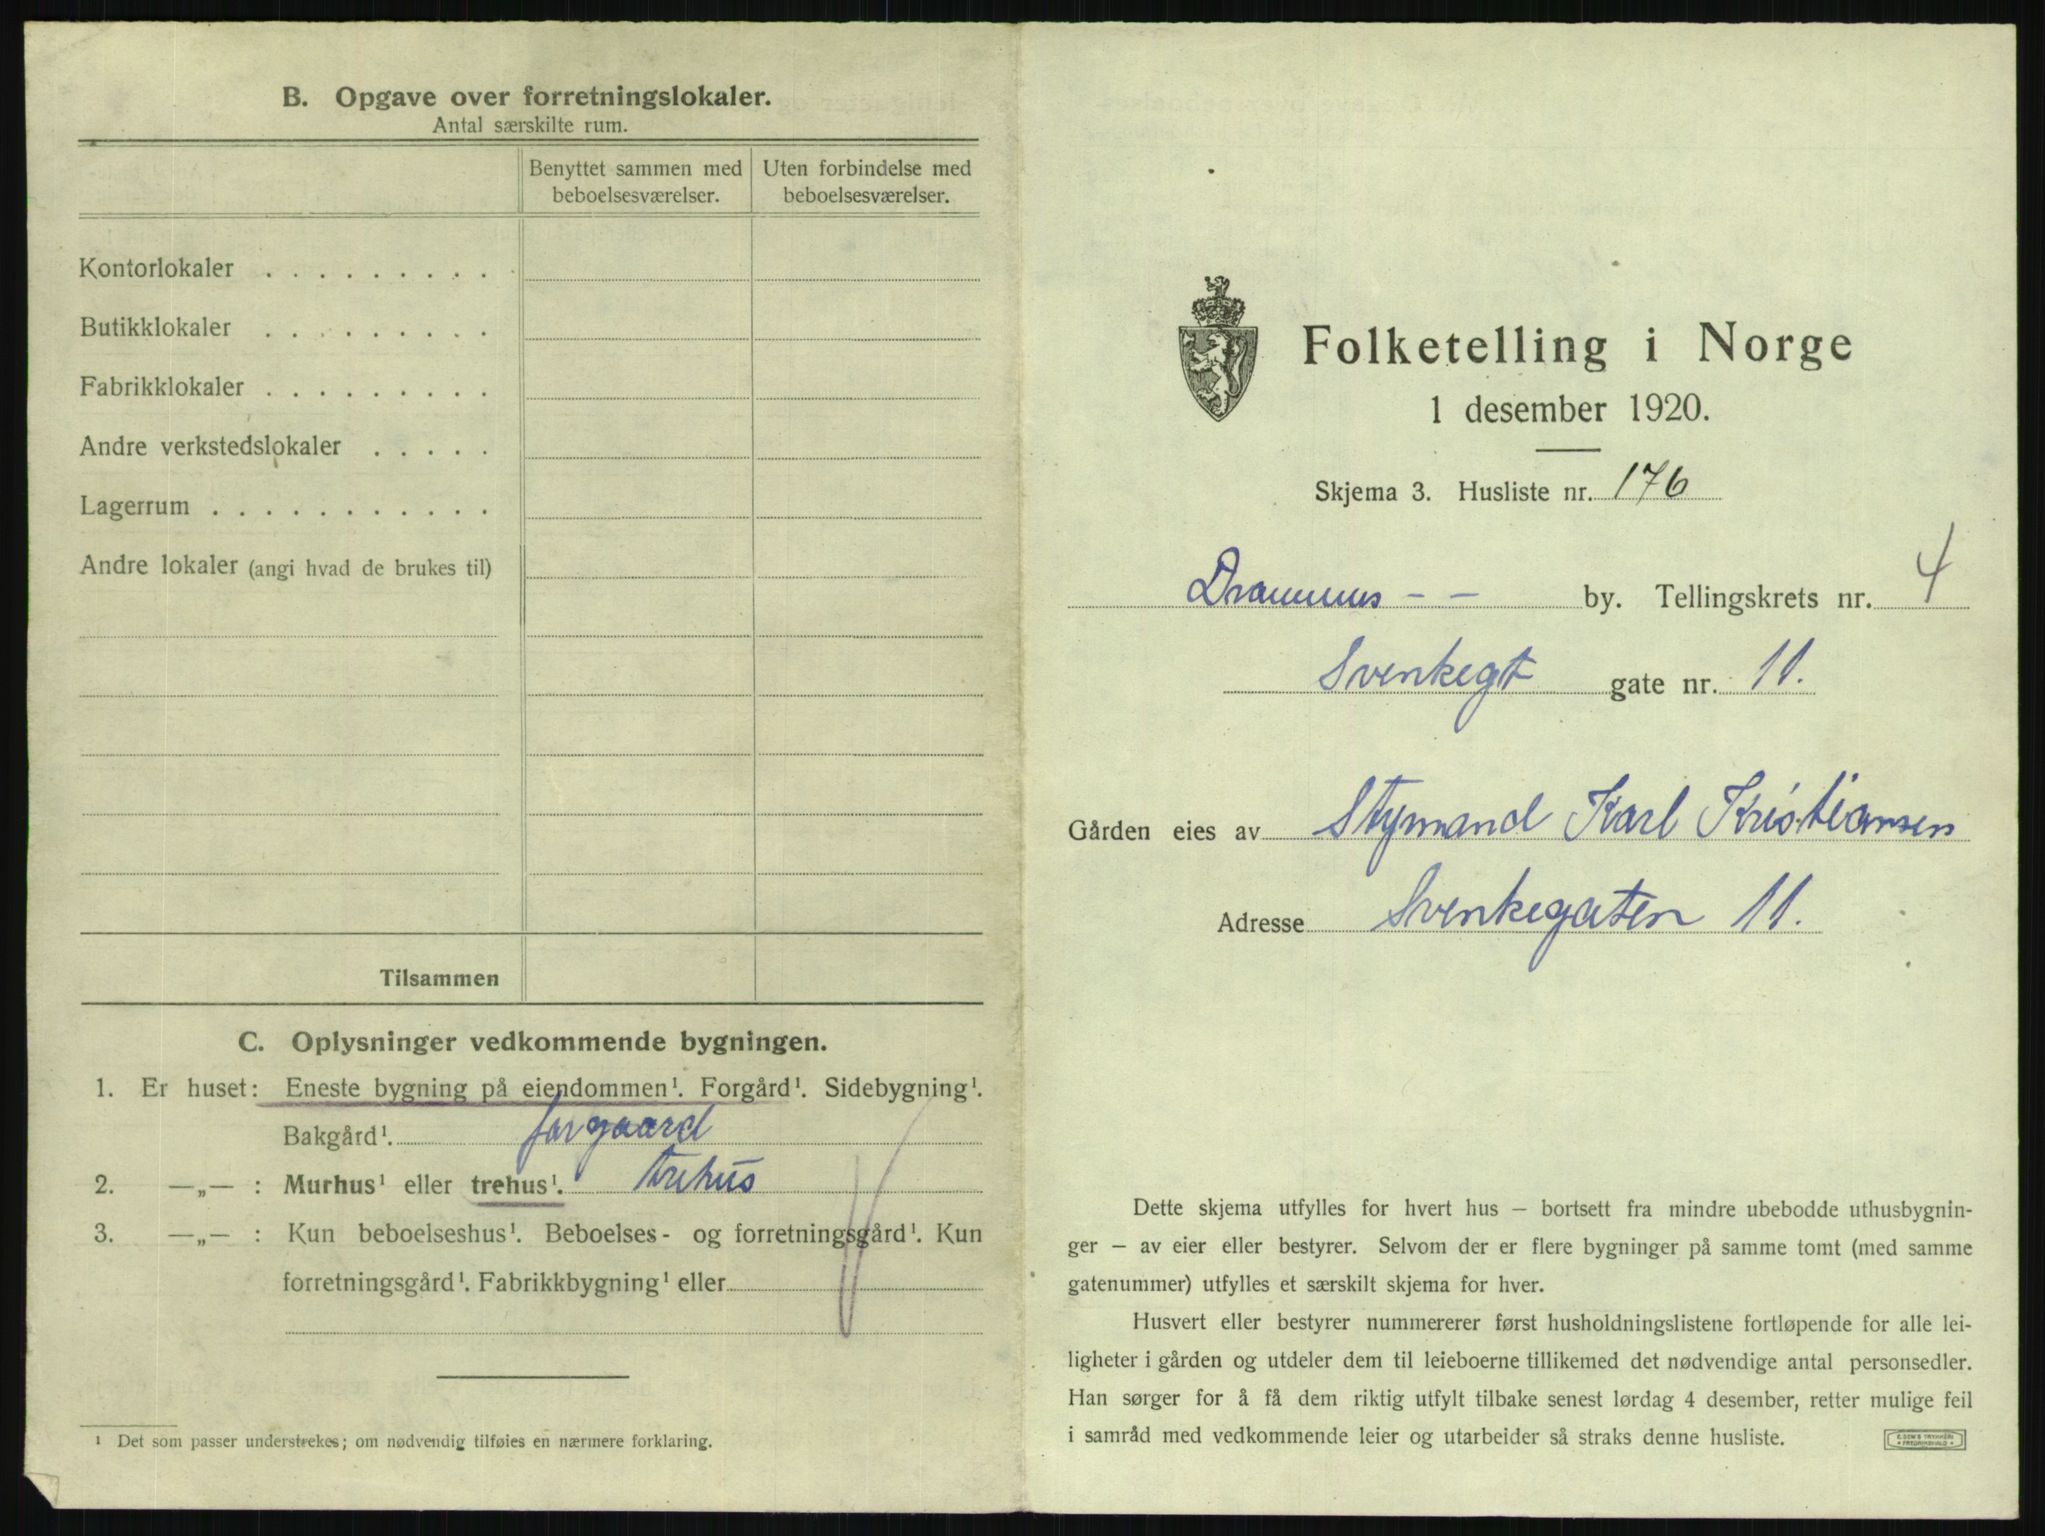 B. Opgave over forretningslokaler.
Antal særskilte rum.
Benyttet sammen med beboelsesværelser.
Uten forbindelse med beboelsesværelser.
Kontorlokaler . . . . . . . . .
Butikklokaler . . . . . . . . .
Fabrikklokaler . . . . . . . . .
Andre verkstedslokaler . . . . .
Lagerrum . . . . . . . . . . .
Andre lokaler (angi hvad de brukes til)
Tilsammen
C. Oplysninger vedkommende bygningen.
1. Er huset: Eneste bygning på eiendommen¹. Forgård¹. Sidebygning¹.
Bakgård¹. forgaard
2. —„— : Murhus¹ eller trehus¹. trehus
3. —„— : Kun beboelseshus¹. Beboelses- og forretningsgård¹. Kun
forretningsgård¹. Fabrikkbygning¹ eller
¹ Det som passer understrekes; om nødvendig tilføies en nærmere forklaring.
Folketelling i Norge
1 desember 1920.
Skjema 3. Husliste nr. 176
Drammens - - by. Tellingskrets nr. 4
Svenkegt gate nr. 11.
Gården eies av Stymand Karl Kristiansen
Adresse Svenkegaten 11.
Dette skjema utfylles for hvert hus – bortsett fra mindre ubebodde uthusbygnin-
ger – av eier eller bestyrer. Selvom der er flere bygninger på samme tomt (med samme
gatenummer) utfylles et særskilt skjema for hver.
Husvert eller bestyrer nummererer først husholdningslistene fortløpende for alle lei-
ligheter i gården og utdeler dem til leieboerne tillikemed det nødvendige antal personsedler.
Han sørger for å få dem riktig utfylt tilbake senest lørdag 4 desember, retter mulige feil
i samråd med vedkommende leier og utarbeider så straks denne husliste.